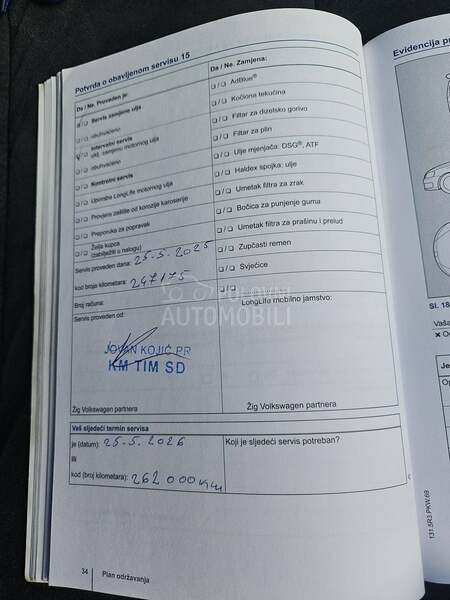 Potvrda o obavljenom servisu 15
Da / Ne. Proveden je:
Servis zamjene ulja
obuhvaćeno
Intervalni servis
uklj. zamjenu motornog ulja
obuhvaćeno
Kontrolni servis
Uporabe LongLife motornog ulja
Provjere zaštite od korozije karoserije
Preporuka za popravak
Želja kupca
(zabilježiti u nalogu)
Servis proveden dana: 25.5.2025
kod broja kilometara: 247175
Broj računa:
Servis proveden od:
JOVAN KOJIĆ PR
KM TIM SD
Žig Volkswagen partnera
Da / Ne. Zamjena:
AdBlue®
Kočiona tekućina
Filtar za dizelsko gorivo
Filtar za plin
Ulje mjenjača: DSG®, ATF
Haldex spojka: ulje
Umetak filtra za zrak
Bočica za punjenje guma
Umetak filtra za prašinu i pelud
Zupčasti remen
Svjećice
LongLife mobilno jamstvo:
Žig Volkswagen partnera
POLOVNI
AUTOMOBILI
Vaš sljedeći termin servisa
je (datum): 25-5.2026
ili
kod (broj kilometara): 262000 km
Koji je sljedeći servis potreban?
34
Plan održavanja
Evidencija
Sl. 18
Vaša
131.5R3.PKW.69